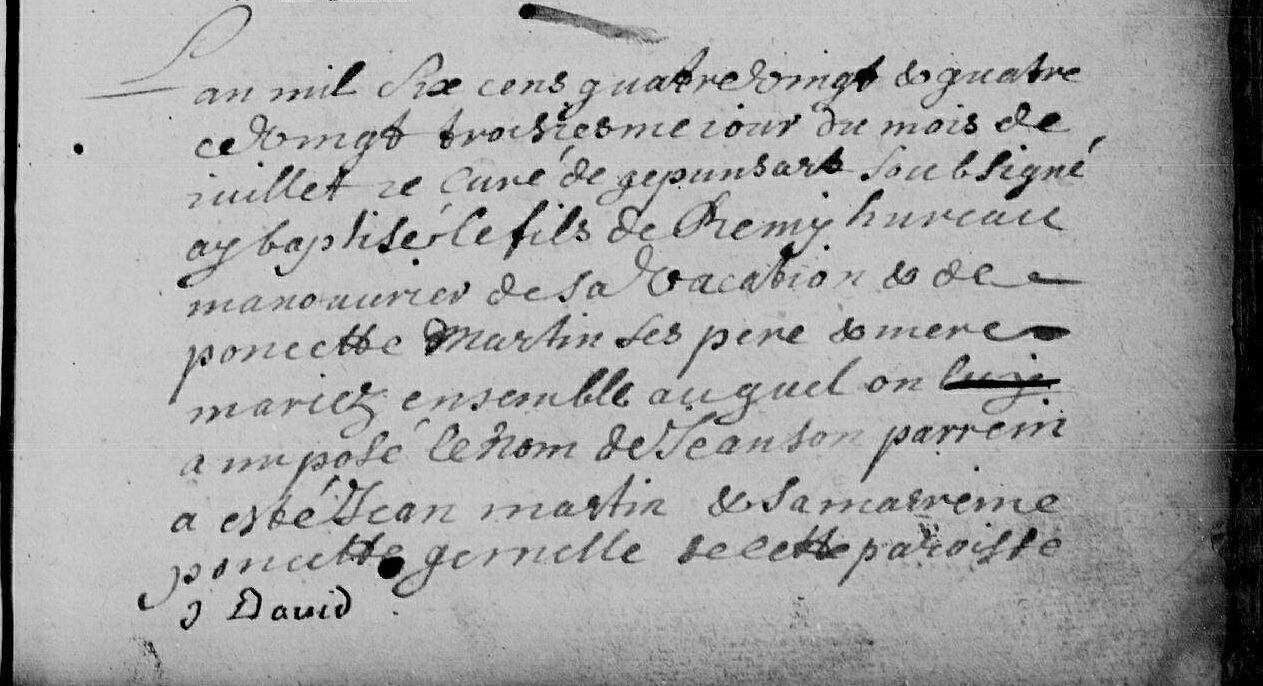 L'an mil six cens quatre vingt & quatre
ce vingt troisiesme iour du mois de
iuillet ie Curé de gepunsart soubsigné
ay baptisé le fils de Remy hureau
manouurier de sa vacation & de
poncette Martin ses pere & mere
mariez ensemble auquel on luy
a imposé le nom de Jean son parrein
a esté Jean martin & sa marreine
poncette gernelle de cette paroisse
J David